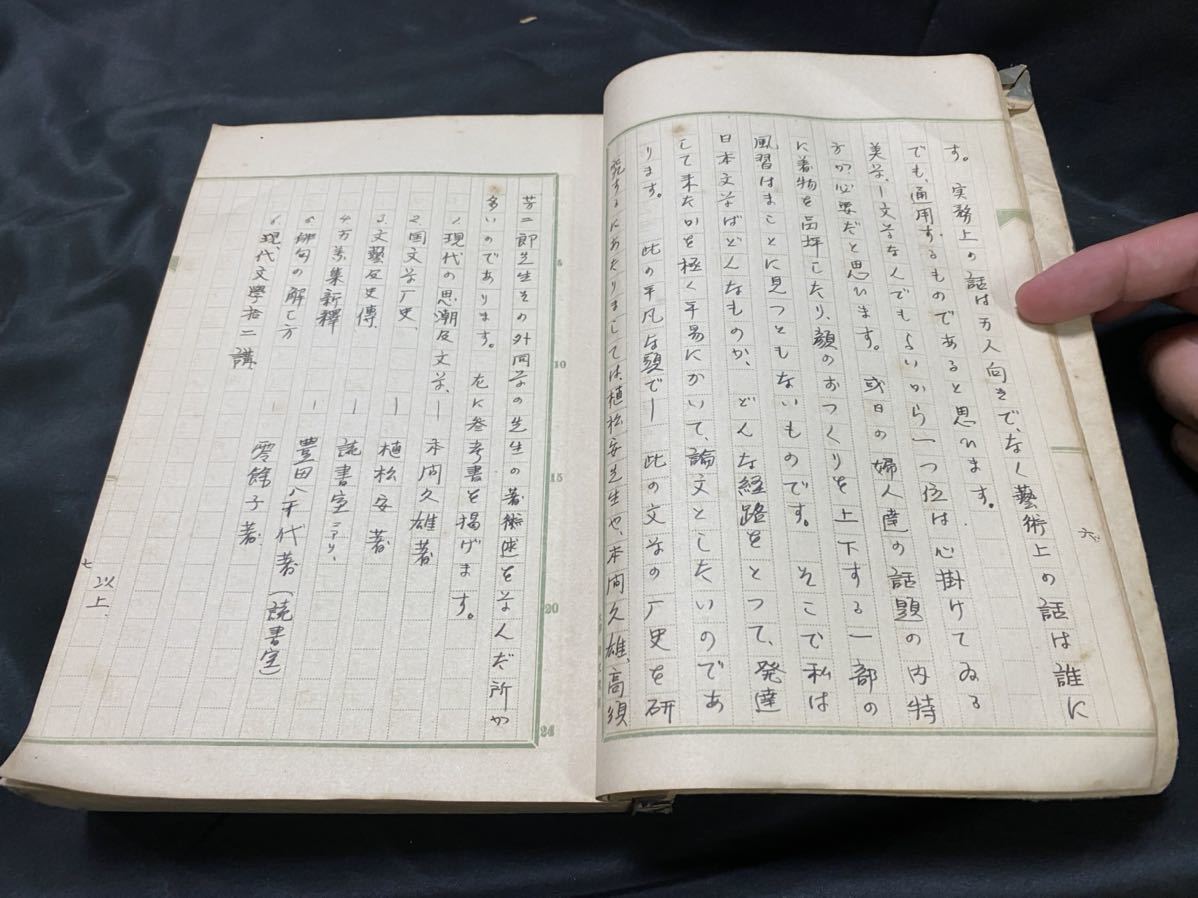 す。実務上の話は万人向きで、なく藝術上の話は誰に
でも、通用するものであると思ひます。
美学、文学なんでもよいから一つ位は心掛けてゐる
方が必要だと思ひます。或日の婦人達の話題の内特
に着物を品坪したり、顔のおつくりを上下する一部の
風習はまことに見つともないものです。そこで私は
日本文学はどんなものか、どんな経路をとつて、発達
して来たかを極く平易にかいて、論文としたいのであ
ります。此の平凡な頭で一此の文学の厂史を研
究するにあたりましては、植松安先生や、本間久雄、高須
芳二郎先生その外同学の先生の著術を学んだ所が
多いのであります。左に参考書を揚げます。
1 現代の思潮及文学、ー 本間久雄著
2 国文学厂史、ー 植松安著
3 文藝反史傳 読書室ニアリ、
4 万葉集新釋 ー 豊田八千代著(読書室
5 俳句の解し方 ー 零餘子著
6 現代文學拾二講
以上、
六
七
5
10
15
20
24